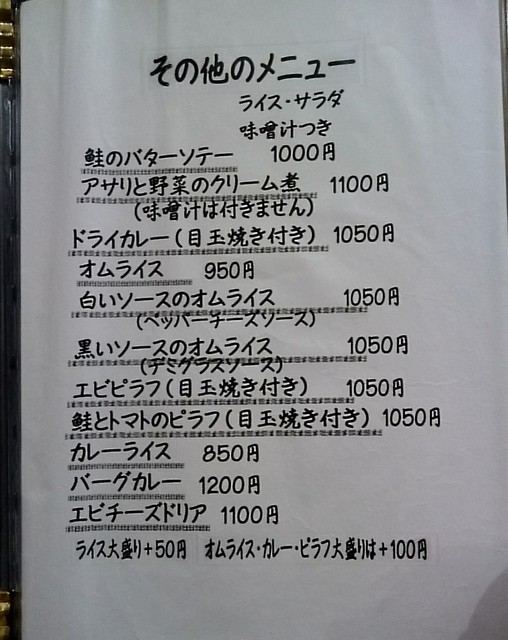 その他のメニュー
ライス・サラダ
味噌汁つき
鮭のバターソテー 1000円
アサリと野菜のクリーム煮 1100円
(味噌汁は付きません)
ドライカレー(目玉焼き付き) 1050円
オムライス 950円
白いソースのオムライス 1050円
(ペッパーチーズソース)
黒いソースのオムライス 1050円
(デミグラスソース)
エビピラフ(目玉焼き付き) 1050円
鮭とトマトのピラフ(目玉焼き付き) 1050円
カレーライス 850円
バーグカレー 1200円
エビチーズドリア 1100円
ライス大盛り+50円 オムライス・カレー・ピラフ大盛りは+100円